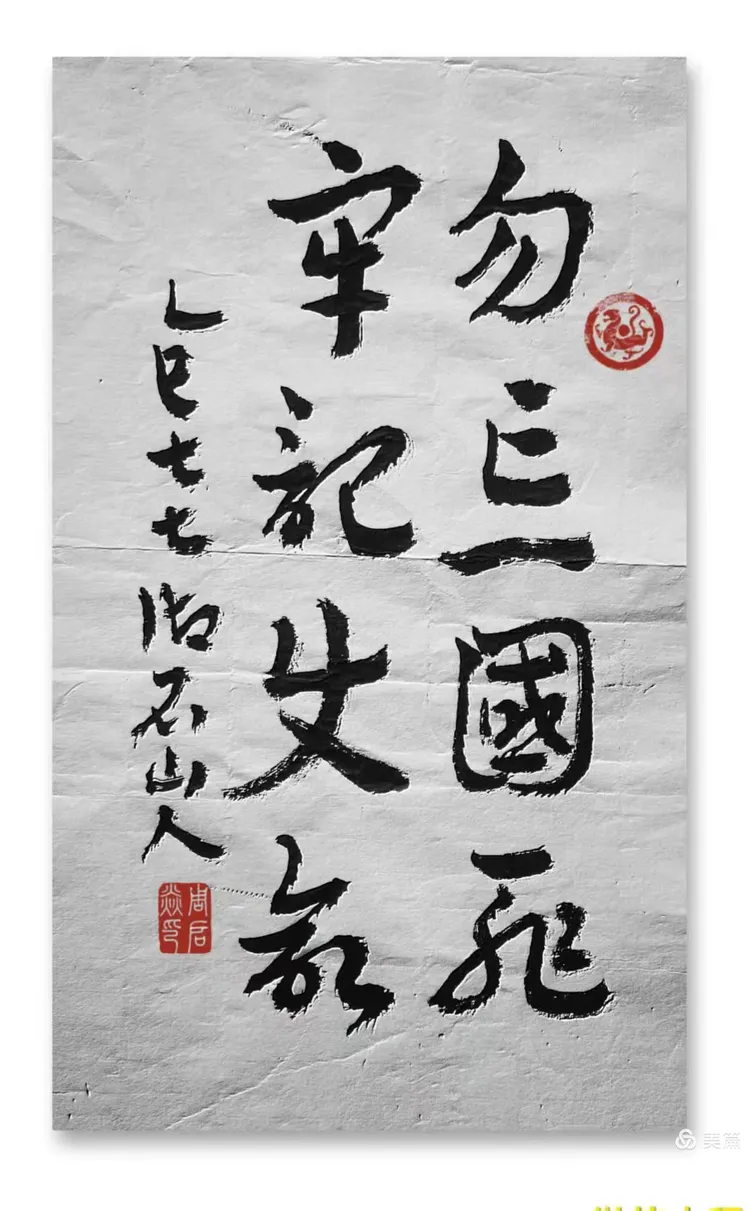 勿忘國耻
牢記史
乙巳七七 石山人
美篇